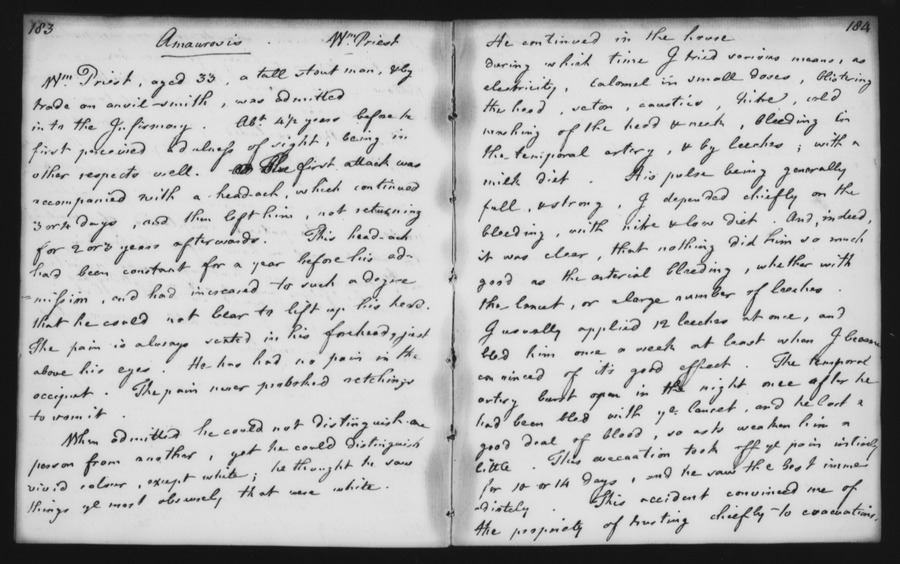 183
Amaurosis . Wm. Priest
Wm. Priest, aged 33, a tall stout man, & by
trade an anvil-smith, was admitted
in to the Infirmary. Abt. 4½ years before he
first perceived a dulness of sight; being in
other respects well. The first attack was
accompanied with a head-ach, which continued
3 or 4 days, and then left him, not returning
for 2 or 3 years afterwards. This head-ach
had been constant for a year before his ad-
=mission, and had increased to such a degree
that he could not bear to lift up his head.
The pain is always seated in his forehead, just
above his eyes. He has had no pain in the
occiput. The pain never provoked retchings
to vomit.
When admitted he could not distinguish one
person from another, yet he could distinguish
vivid colour, except white; he thought he saw
things ye most obscurely that were white.
184
He continued in the house
during which time I tried various means, as
electricity, calomel in small doses, blistering
the head, seton, caustics, nitre, cold
washing of the head & neck, bleeding in
the temporal artery, & by leeches; with a
milk diet. His pulse being generally
full, & strong, I depended chiefly on the
bleeding, with nitre & low diet. And, indeed,
it was clear, that nothing did him so much
good as the arterial bleeding, whether with
the lancet, or a large number of leeches.
I usually applied 12 leeches at once, and
bled him once a week at least when I became
convinced of its good effect. The temporal
artery burst open in the night once after he
had been bled with ye lancet, and he lost a
good deal of blood, so as to weaken him a
little. This evacuation took off ye pain intirely
for 10 or 14 days, and he saw the best imme-
diately. This accident convinced me of
the propriety of trusting chiefly to evacuations,